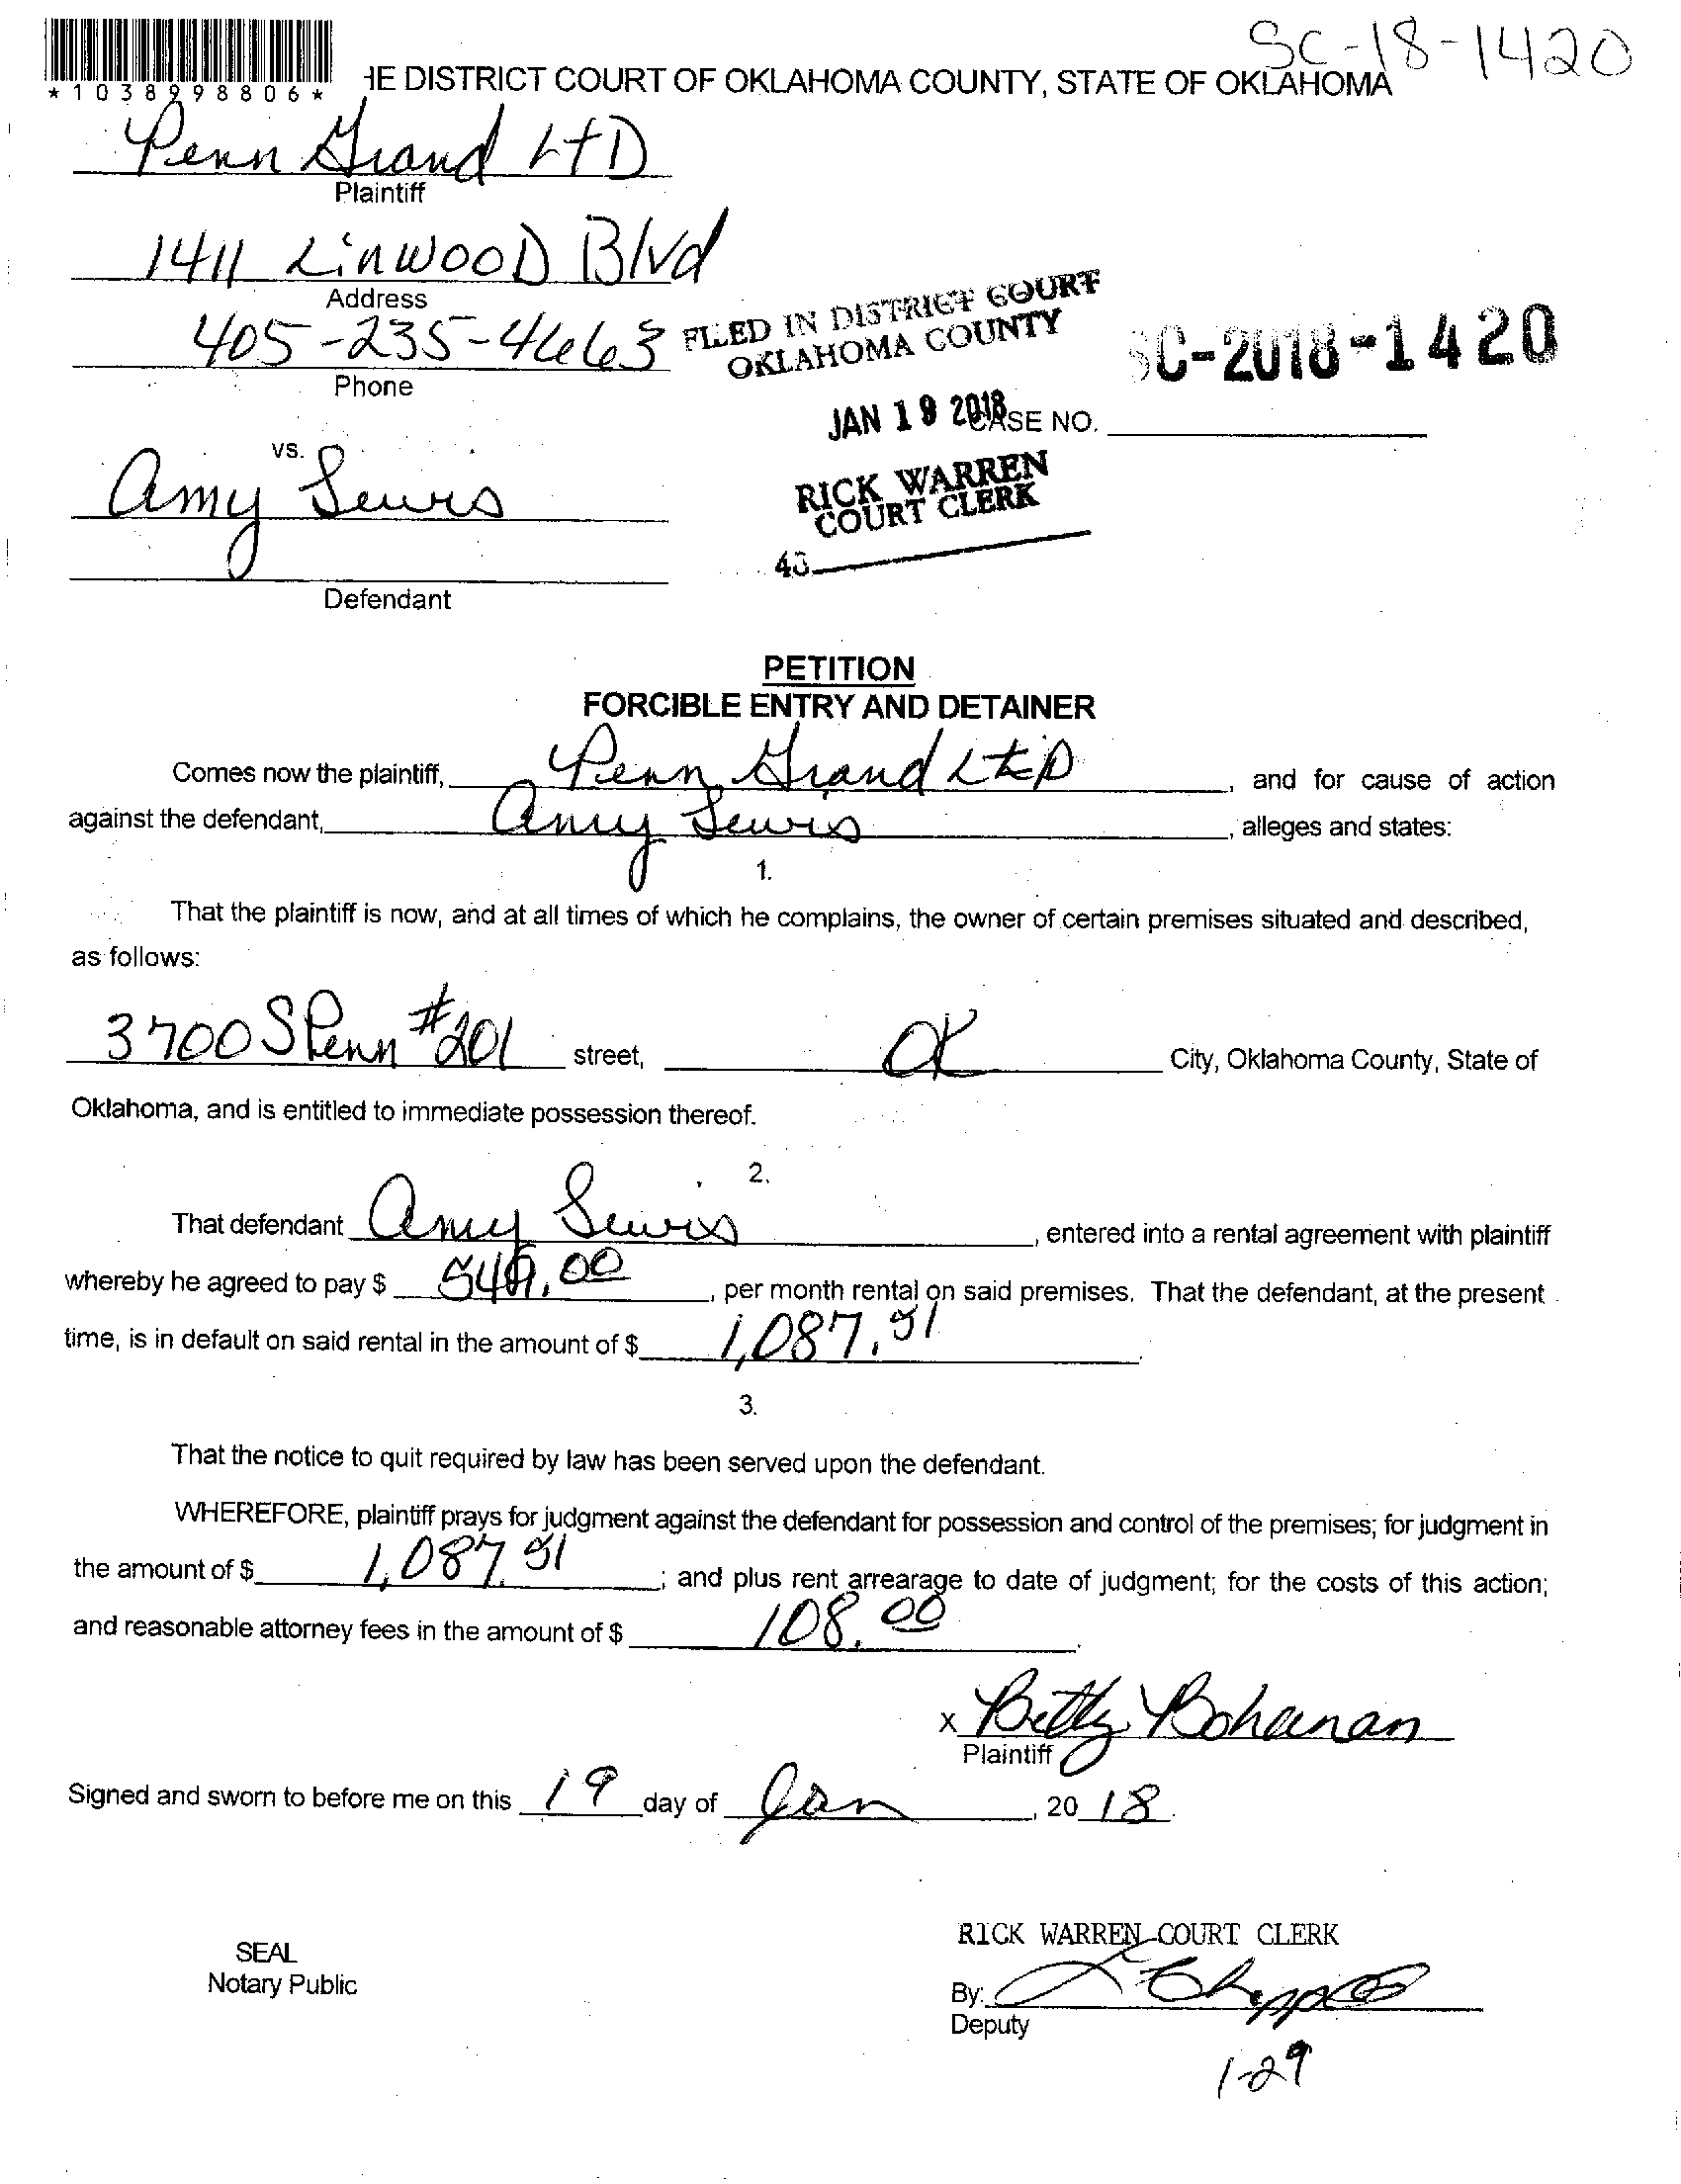 SC-18-1420
*1038998806*
HE DISTRICT COURT OF OKLAHOMA COUNTY, STATE OF OKLAHOMA
Penn Grand LTD
Plaintiff
1411 LinwooD Blvd
Address
405-235-4663
Phone
FILED IN DISTRICT COURT
OKLAHOMA COUNTY
SC-2018-1420
JAN 19 2018
CASE NO.
vs.
Amy Lewis
RICK WARREN
COURT CLERK
Defendant
PETITION
FORCIBLE ENTRY AND DETAINER
Comes now the plaintiff, Penn Grand LtD, and for cause of action
against the defendant, Amy Lewis, alleges and states:
1.
That the plaintiff is now, and at all times of which he complains, the owner of certain premises situated and described,
as follows:
3700 S Penn #201 street, OK City, Oklahoma County, State of
Oklahoma, and is entitled to immediate possession thereof.
2.
That defendant Amy Lewis, entered into a rental agreement with plaintiff
whereby he agreed to pay $ , per month rental on said premises. That the defendant, at the present
time, is in default on said rental in the amount of $ 1,087.51.
3.
That the notice to quit required by law has been served upon the defendant.
WHEREFORE, plaintiff prays for judgment against the defendant for possession and control of the premises; for judgment in
the amount of $ 1,087.51; and plus rent arrearage to date of judgment; for the costs of this action;
and reasonable attorney fees in the amount of $ 108.00.
x Betty Bohanan
Plaintiff
Signed and sworn to before me on this 19 day of Jan, 2018.
RICK WARREN COURT CLERK
SEAL
Notary Public
By:
Deputy
1-29